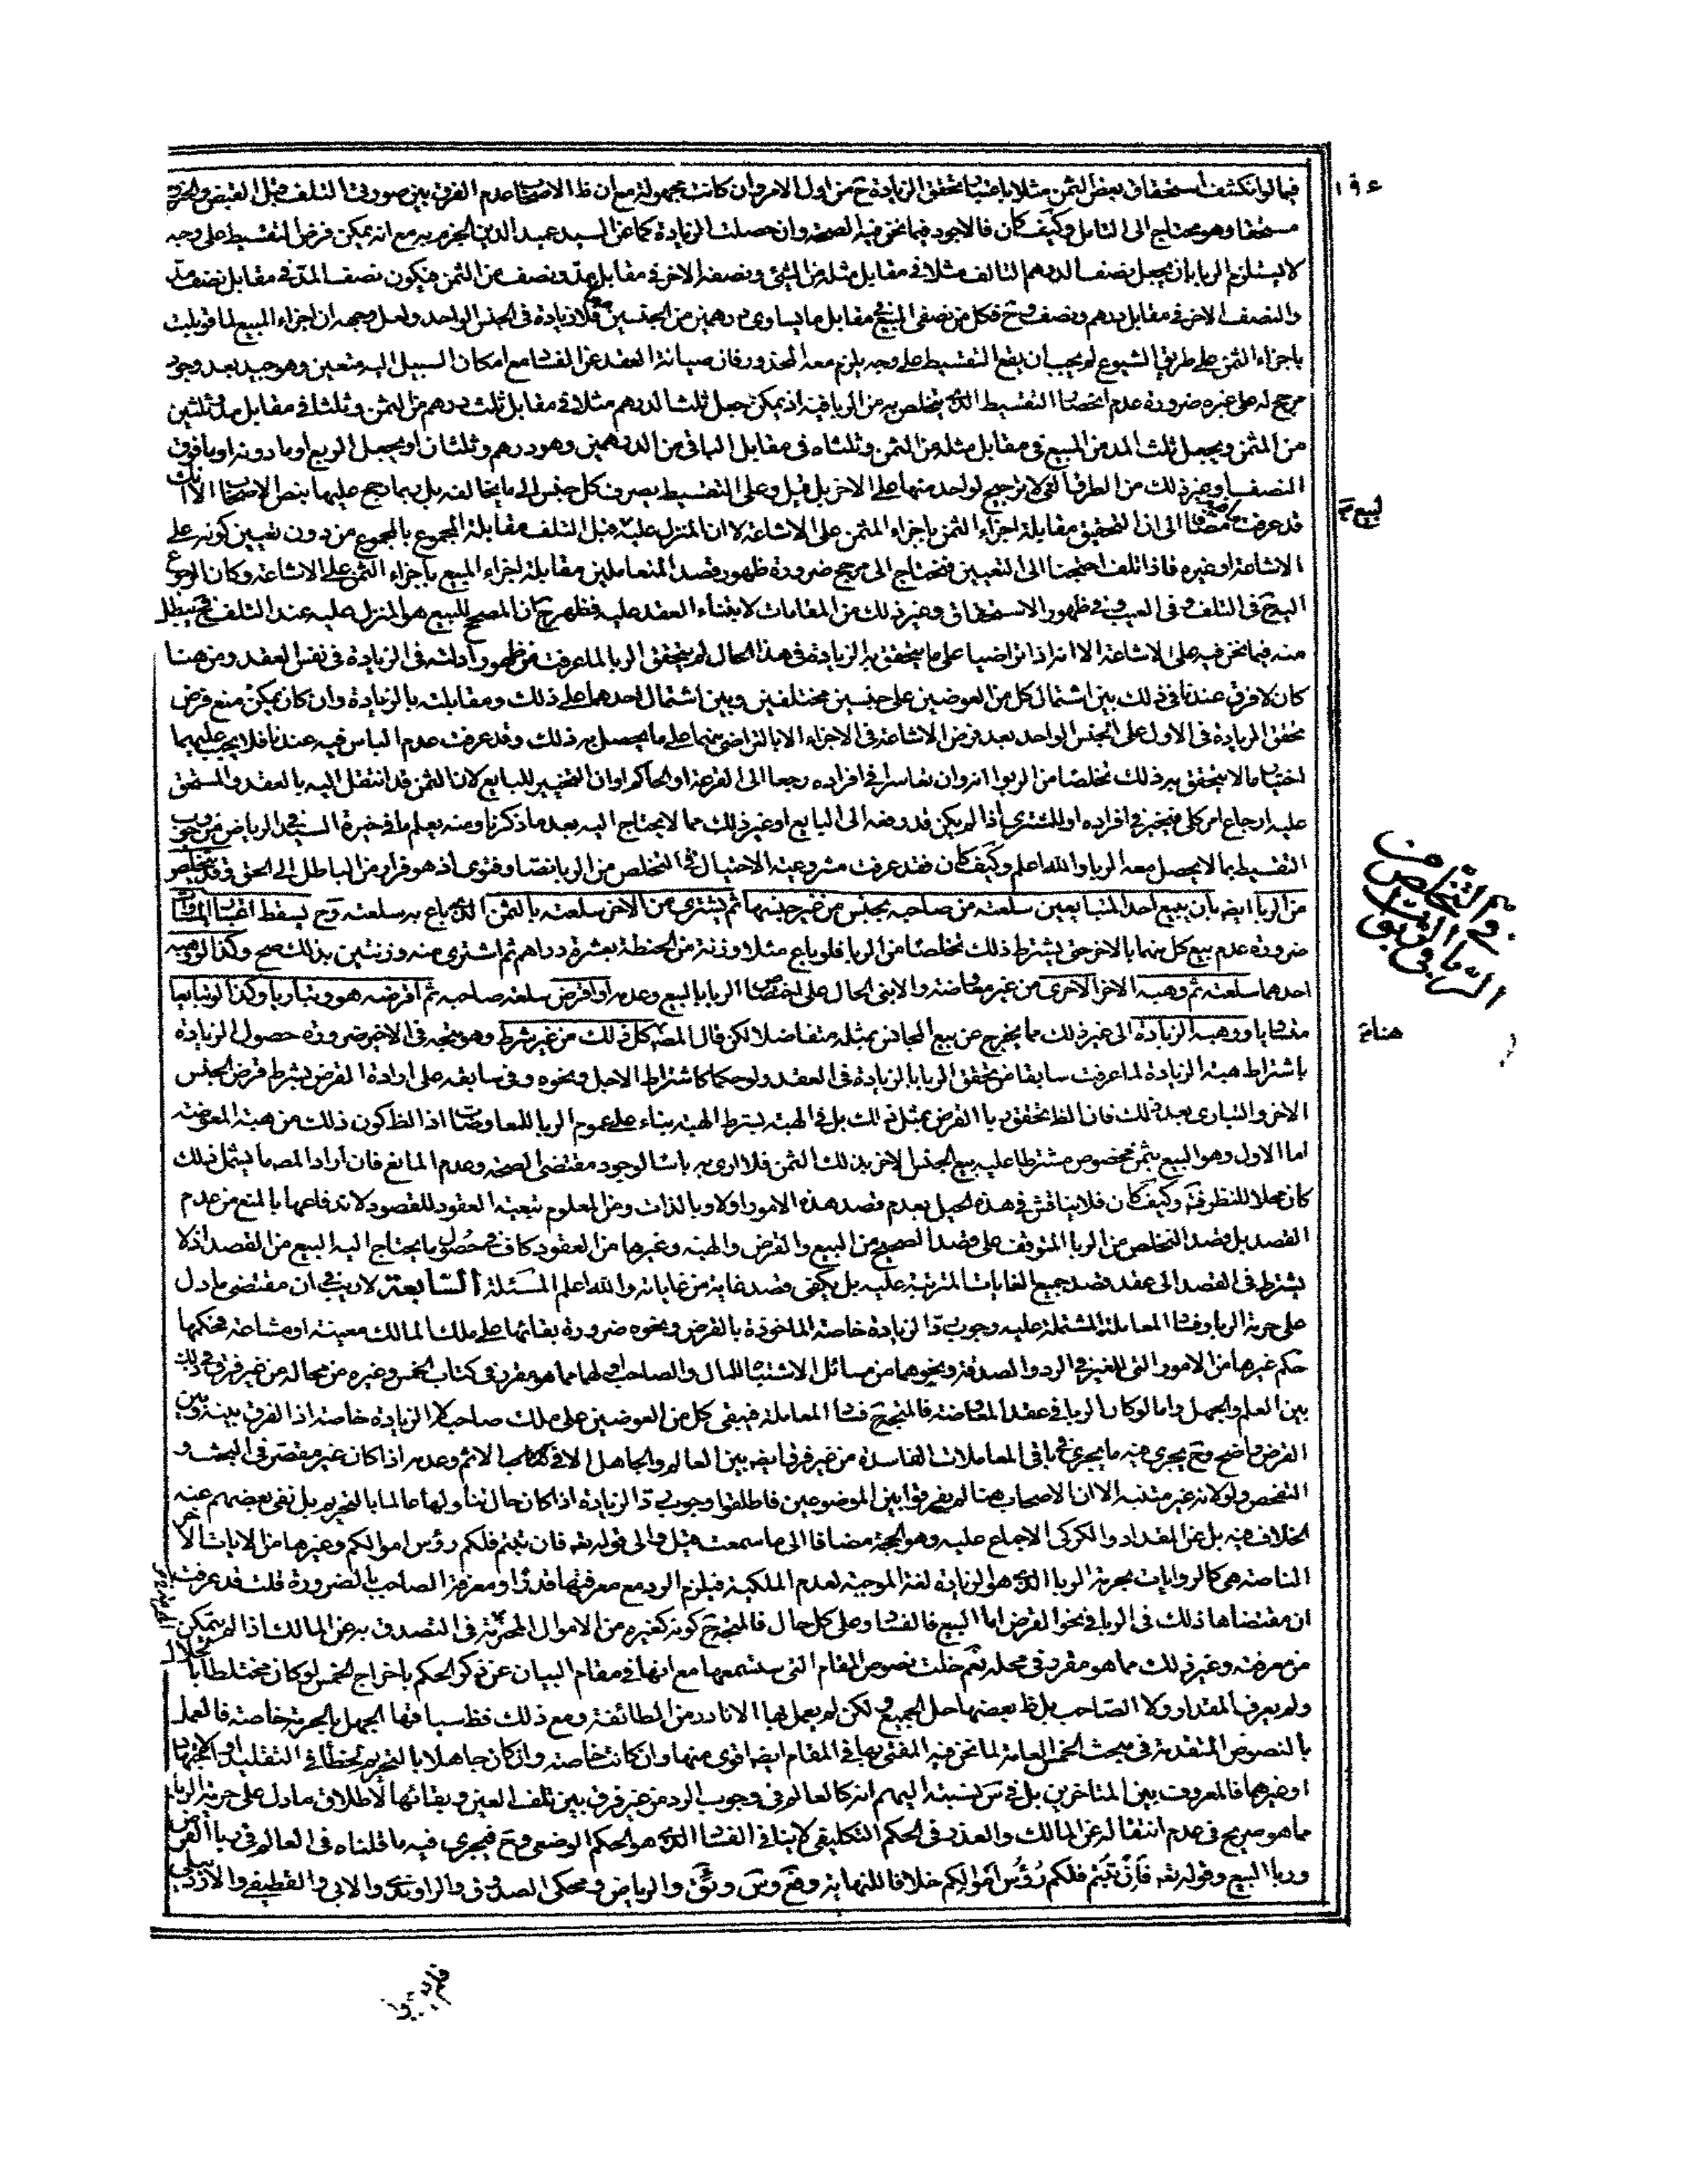 فيما لو انكشف استحقاق بعض الثمن مثلا باعتبار تحقق الزيادة ح من اول الامر وان كانت مجهولة مع ان ظ الاصحاب عدم الفرق بين صورتى التلف قبل القبض والخروج
مستحقا وهو محتاج الى التامل وكيف كان فالاجود فيما نحن فيه الصحة وان حصلت الزيادة كما عن السيد عميد الدين الجزم به مع انه يمكن فرض التقسيط على وجه
لا يستلزم الربا بان يجعل نصف الدرهم التالف مثلا فى مقابل مثله من الثمن ونصفه الاخر فى مقابل مد ونصف من الثمن فيكون نصف المد فى مقابل نصف مد
والنصف الاخر فى مقابل درهم ونصف وح فكل من نصفى المبيع فى مقابل ما يساوى درهمين من الجنسين فلا زيادة فى الجنس الواحد ولعل وجهه ان اجزاء المبيع لما قوبلت
باجزاء الثمن على طريق الشيوع لم يجب ان يقع التقسيط على وجه يلزم معه المحذور فان صيانة العقد عن الفساد مع امكان السبيل اليه متعين وهو جيد بعد وجود
مرجح له على غيره ضرورة عدم انحصار التقسيط الذى يتخلص به من الربا فيه اذ يمكن جعل ثلث الدرهم مثلا فى مقابل ثلث درهم من الثمن وثلثا فى مقابل مد وثلثين
من الثمن ويجعل ثلث المد من المبيع فى مقابل مثله من الثمن وثلثاه فى مقابل الباقى من الدرهمين وهو درهم وثلثان او يجعل الربع او ما دونه او ما فوق
النصف او غير ذلك من الطرق التى لا ترجيح لواحد منها على الاخر بل قيل وعلى التقسيط بصرف كل جنس الى ما يخالفه بل ربما رجح عليها بنص الاصحاب الا انك
قد عرفت مضافا الى ان التحقيق مقابلة اجزاء الثمن باجزاء المثمن على الاشاعة لان المنزل عليه قبل التلف مقابلة المجموع بالمجموع من دون تعيين كونه على
الاشاعة او غيره فاذا تلف احتجنا الى التعيين فنحتاج الى مرجح ضرورة ظهور قصد المتعاملين مقابلة اجزاء المبيع باجزاء الثمن على الاشاعة وكان الرجوع
اليه ح فى التلف وفى العيب وفى ظهور الاستحقاق وغير ذلك من المقامات لابتناء العقد عليه فظهر ح ان المصحح للبيع هو المنزل عليه عند التلف فح يبطل
منه فيما نحن فيه على الاشاعة الا انه اذا تراضيا على ما يتحقق به الزيادة فى هذا الحال لم يتحقق الربا لما عرفت من ظهور ادلته فى الزيادة فى نفس العقد ومن هنا
كان لا فرق عندنا فى ذلك بين اشتمال كل من العوضين على جنسين مختلفين وبين اشتمال احدهما على ذلك ومقابلته بالزيادة وان كان يمكن منع فرض
تحقق الزيادة فى الاول على الجنس الواحد بعد فرض الاشاعة فى الاجزاء الا بالتراضى منهما على ما يحصل به ذلك وقد عرفت عدم الباس فيه عندنا فلا يجب عليهما
اختيار ما لا يتحقق به ذلك تخلصا من الربوا انه وان تعاسرا فى افراده رجعا الى القرعة او الحاكم او ان التخيير للبايع لان الثمن قد انتقل اليه بالعقد والمستحق
عليه ارجاع امر كلى فيتخير فى افراده او للمشترى اذا لم يكن قد دفعه الى البايع او غير ذلك مما لا يحتاج اليه بعد ما ذكرنا ومنه يعلم ما فى خيرة السيد فى الرياض من وجوب
التقسيط بما لا يحصل معه الربا والله اعلم وكيف كان فقد عرفت مشروعية الاحتيال فى التخلص من الربا نصا وفتوى اذ هو فرار من الباطل الى الحق وقد يتخلص
من الربا ايضا بان يبيع احد المتبايعين سلعته من صاحبه بجنس من غير جنسها ثم يشترى من الاخر سلعته بالثمن الذى باع به سلعته وح يسقط اعتبار المساواة
ضرورة عدم بيع كل منهما بالاخر حتى يشترط ذلك تخلصا من الربا فلو باع مثلا وزنة من الحنطة بعشرة دراهم ثم اشترى منه وزنتين بذلك صح وكذا لو وهبه
احدهما سلعته ثم وهبه الاخر الاخرى من غير معاوضة والا بنى الحال على اختصاص الربا بالبيع وعدمه او اقرض سلعته صاحبه ثم اقرضه هو وتباريا وكذا لو تبايعا
متساويا ووهبه الزيادة الى غير ذلك مما يخرج عن بيع المجانس بمثله متفاضلا لكن قال المصـ كل ذلك من غير شرط وهو متجه فى الاخير ضرورة حصول الزيادة
باشتراط هبة الزيادة لما عرفت سابقا من تحقق الربا بالزيادة فى العقد ولو حكما كاشتراط الاجل ونحوه وفى سابقه على ارادة القرض بشرط قرض الجنس
الاخر والتبارى بعد ذلك فان الظ تحقق ربا القرض بمثل ذلك بل فى الهبة بشرط الهبة بناء على عموم الربا للمعاوضات اذ الظ كون ذلك من هبة المعوضة
اما الاول وهو البيع بثمن مخصوص مشترطا عليه بيع الجنس الاخر بذلك الثمن فلا ارى به باسا لوجود مقتضى الصحة وعدم المانع فان اراد المصـ ما يشمل ذلك
كان محلا للنظر فيه وكيف كان فلا يناقش فى هذه الحيل بعدم قصد هذه الامور اولا وبالذات ومن المعلوم تبعية العقود للقصود لاندفاعها بالمنع من عدم
القصد بل قصد التخلص من الربا المتوقف على قصد الصحيح من البيع والقرض والهبة وغيرها من العقود كاف فى حصول ما يحتاج اليه البيع من القصد اذ لا
يشترط فى القصد الى عقد قصد جميع الغايات المترتبة عليه بل يكفى قصد غاية من غاياته والله اعلم المسئلة السابعة لا ريب فى ان مقتضى ما دل
على حرمة الربا وفساد المعاملة المشتملة عليه وجوب رد الزيادة خاصة الماخوذة بالقرض ونحوه ضرورة بقائها على ملك المالك معينة او مشاعة فحكمها
حكم غيرها من الامور التى للغير فى الرد والصدقة ونحوهما من مسائل الاشتباه للمال والصاحب او لهما مما هو مقرر فى كتاب الخمس وغيره من محاله من غير فرق فى ذلك
بين العلم والجهل واما لو كان الربا فى عقد المعاوضة فالمتجه ح فساد المعاملة فيبقى كل من العوضين على ملك صاحبه لا الزيادة خاصة اذ الفرق بينه وبين
القرض واضح وح يجرى فيه ما يجرى فى باقى المعاملات الفاسدة من غير فرق ايضا بين العالم والجاهل الا فى الاثم وعدمه اذا كان غير مقصر فى البحث و
التفحص ولو لانه غير متنبه الا ان الاصحاب هنا لم يفرقوا بين الموضوعين فاطلقوا وجوب رد الزيادة اذا كان حال تناولها عالما بالتحريم بل نفى بعضهم عنه
الخلاف فيه بل عن المقداد والكركى الاجماع عليه وهو الحجة مضافا الى ما سمعت قبل والى قوله تعـ فان تبتم فلكم رؤس اموالكم وغيرها من الايات الاخر
الناصة هى كالروايات بحرمة الربا الذى هو الزيادة لغة الموجبة لعدم الملكية فيلزم الرد مع معرفتها قدرا ومعرفة الصاحب بالضرورة قلت قد عرفت
ان مقتضاها ذلك فى الربا فى نحو القرض اما البيع فالفساد وعلى كل حال فالمتجه ح كونه كغيره من الاموال المحرمة فى التصدق به عن المالك اذا لم يتمكن
من معرفته وغير ذلك مما هو مقرر فى محله نعم خلت نصوص المقام التى ستسمعها مع انها فى مقام البيان عن ذكر الحكم باخراج الخمس لو كان مختلطا بالحلال
ولم يعرف المقدار ولا الصاحب بل ظ بعضها حل الجميع لكن لم يعمل بها الا نادر من الطائفة ومع ذلك فظ سياقها الجهل بالحرمة خاصة فالعمل
بالنصوص المتقدمة فى مبحث الخمس العامة لما نحن فيه المفتى بها فى المقام ايضا اقوى منها وان كانت خاصة وان كان جاهلا بالتحريم لخطأ فى التقليد او الاجتهاد
او غيرهما فالمعروف بين المتاخرين بل فى س نسبته اليهم انه كالعالم فى وجوب الرد من غير فرق بين تلف العين وبقائها لاطلاق ما دل على حرمة الربا
مما هو صريح فى عدم انتقاله عن المالك والعذر فى الحكم التكليفى لا ينافى الفساد الذى هو الحكم الوضعى وح فيجرى فيه ما قلناه فى العالم فى ربا القرض
وربا البيع وقوله تعـ فَاِنْ تُبْتُمْ فَلَكُمْ رُؤُسُ اَمْوالِكُمْ خلافا للنهاية وفع وس وئق والرياض ومحكى الصدوق والراوندى والابى والقطيفى والاردبيلى
لبيع
فى التخلص من الربا
هنا